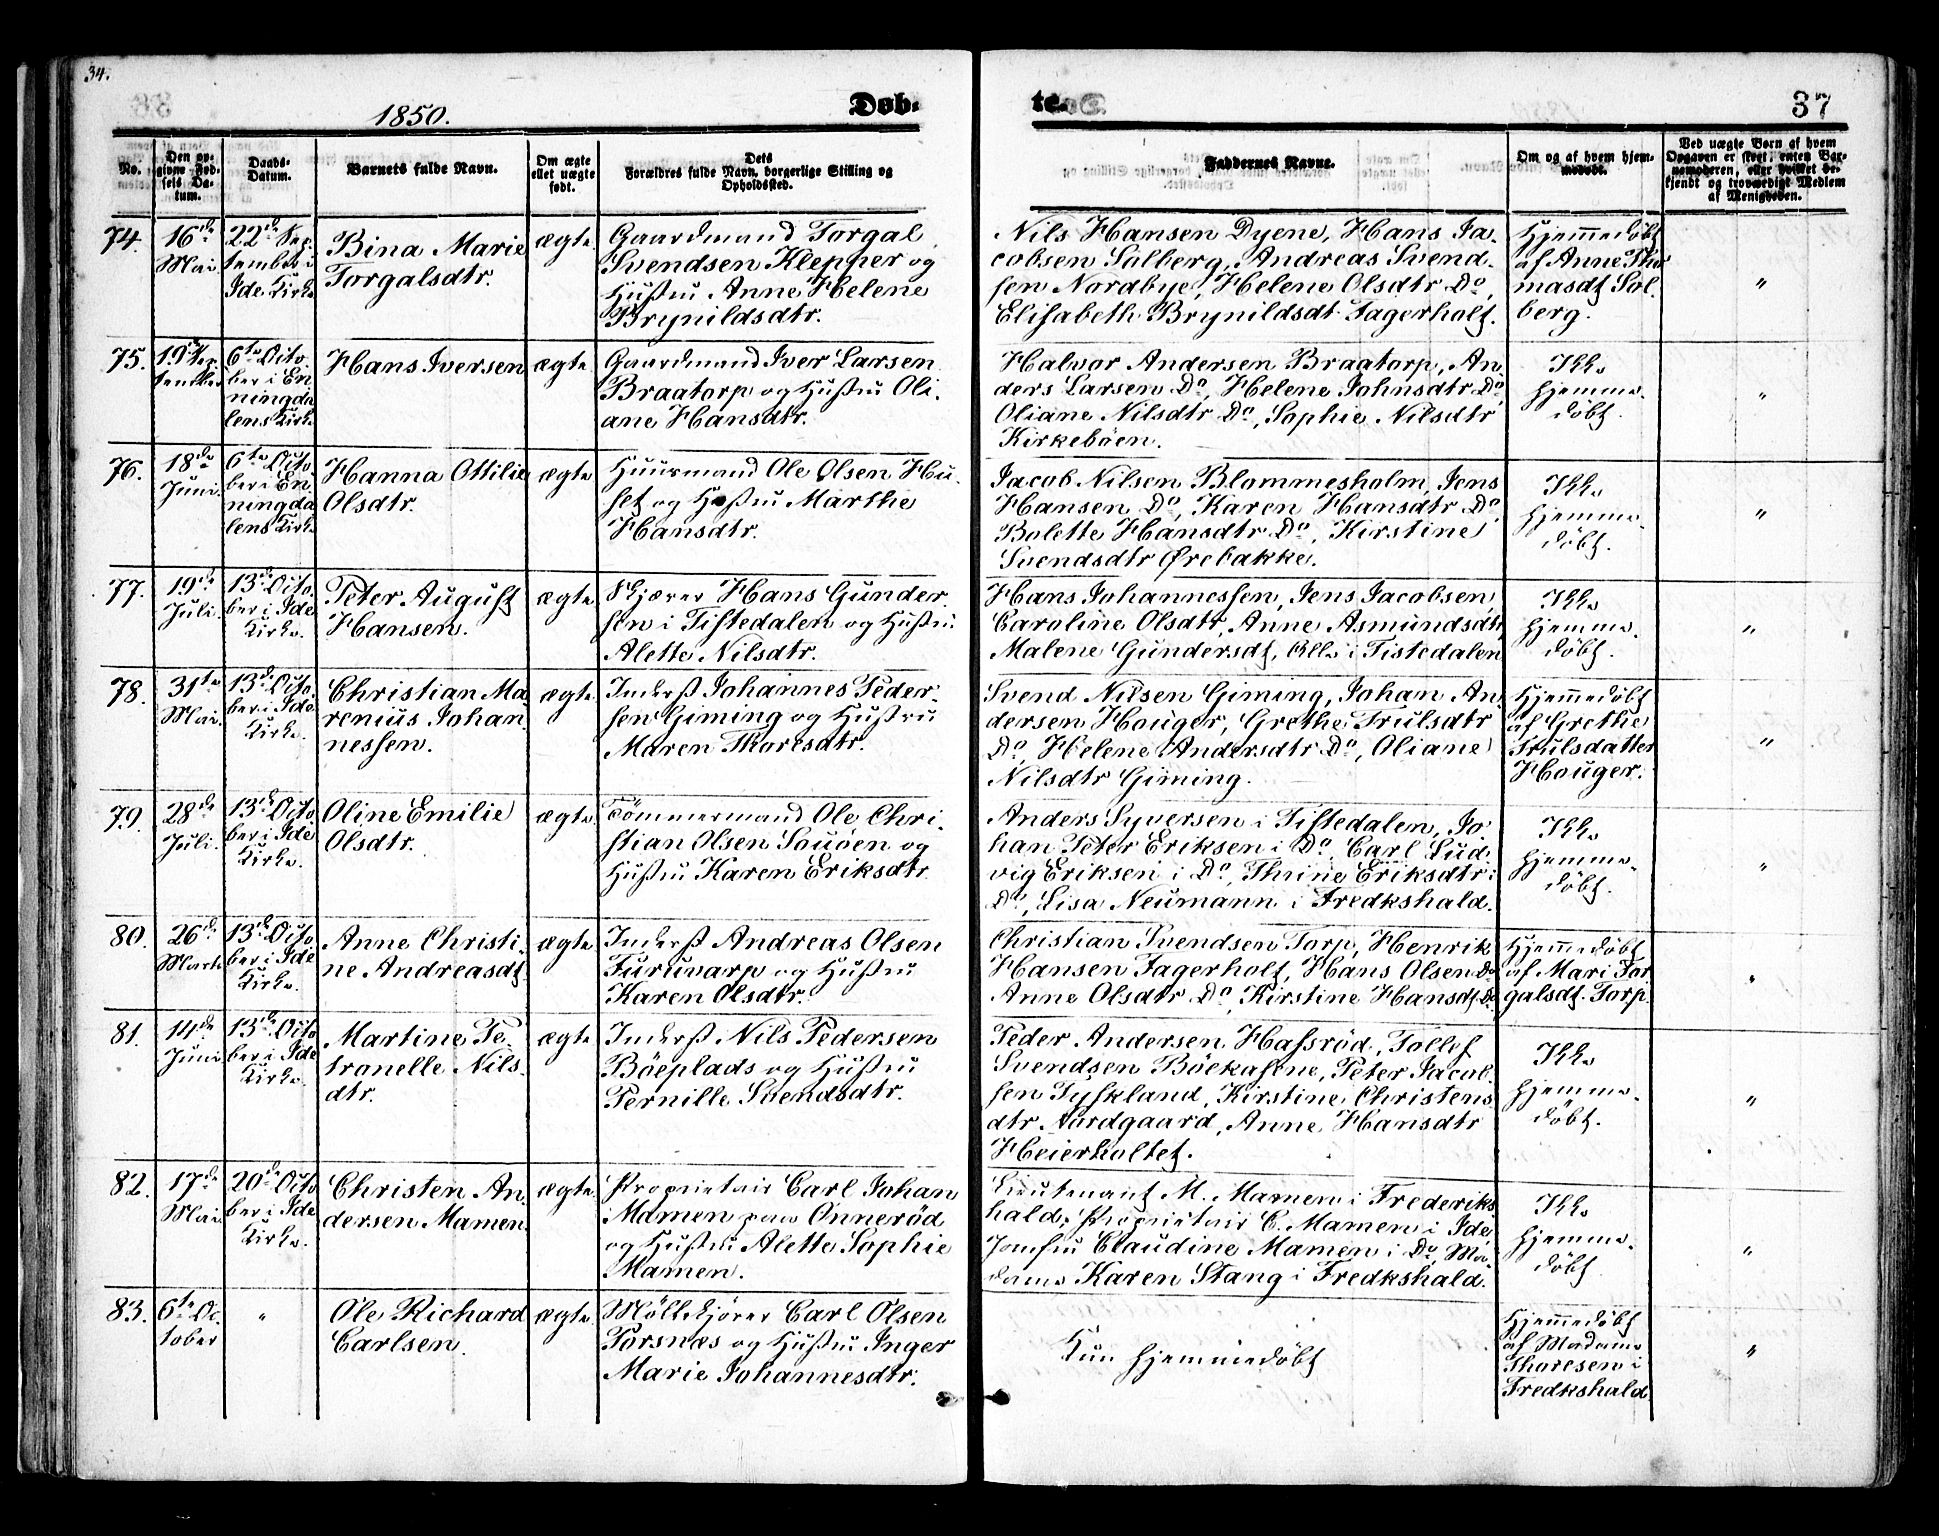 34.
1850.
Døb-
te.
37
No.
Den op-
givne Fød-
sels Da-
tum.
Daabs-
Datum.
Barnets fulde Navn.
Om ægte
ellet uægte
født.
Dets
Forældres fulde Navn, borgerlige Stilling og
Opholdssted.
Faddernes Navne.
Om og af hvem hjem-
medøbt.
Ved uægte Børn af hvem
Opgaven er skeet, enten Bar-
nemoderen, eller hvilket be-
kjendt og troværdigt Medlem
af Menigheden.
74.
16de
Mai.
22de Sep-
tember i
Ide Kirke
Bina Marie
Torgalsdtr.
ægte
Gaardmand Torgal
Svendsen Klepper og
Hustru Anne Helene
Brynildsdtr.
Nils Hansen Dyene, Hans Ja-
cobsen Solberg, Andreas Svend-
sen Nordbye, Helene Olsdtr Do,
Elisabeth Brynildsdt Fagerholt.
Hjemmedøbt
af Anne Tho
masdt Sol-
berg.
"
75.
19de Sep-
tember
6te Octo
ber i En
ningda
lens Kirke
Hans Iversen
ægte
Gaardmand Iver Larsen
Braatorp og Hustru Oli-
ane Hansdtr.
Halvor Andersen Braatorp, An-
ders Larsen Do, Helene Johnsdtr Do
Oliane Nilsdtr Do, Sophie Nilsdtr
Kirkebøen.
Ikke
hjemme-
døbt.
"
76.
18de
Juni.
6te Octo
ber i En
ningda
lens Kirke
Hanna Ottilie
Olsdtr.
ægte
Huusmand Ole Olsen Hu-
set og Hustru Marthe
Hansdtr.
Jacob Nilsen Blommesholm, Jens
Hansen Do, Karen Hansdtr Do
Bolette Hansdtr Do, Kirstine
Svendsdtr Ørebakke.
Ikke
hjemme-
døbt.
"
77.
19de
Juli.
13de Octo-
ber i Ide
Kirke.
Peter August
Hansen.
ægte
Skjærer Hans Gunder-
sen i Tistedalen og Hustru
Alette Nilsdtr.
Hans Johannessen, Jens Jacobsen,
Caroline Olsdtr, Anne Asmundsdtr,
Malene Gundersdt, Alle i Tistedalen
Ikke
hjemme-
døbt.
"
78.
31te
Mai.
13de Octo-
ber i Ide
Kirke.
Christian Ma-
renius Johan-
nessen.
ægte
Inderst Johannes Peder-
sen Giming og Hustru
Maren Thoresdtr.
Svend Nilsen Giming, Johan An-
dersen Houger, Grethe Trulsdtr
Do, Helene Andersdtr Do, Oliane
Nilsdtr Giming.
Hjemmedøbt
af Grethe
Trulsdatter
Houger.
"
79.
28de
Juli.
13de Octo
ber i Ide
Kirke.
Oline Emilie
Olsdtr.
ægte
Tömmermand Ole Chri-
stian Olsen Souöen og
Hustru Karen Eriksdtr.
Anders Syversen i Tistedalen, Jo-
han Peter Eriksen i Do, Carl Lud-
vig Eriksen i Do, Thrine Eriksdtr i
Do, Lisa Neumann i Fredkshald.
Ikke
hjemme-
døbt.
"
80.
26de
Marts
13de Octo
ber i Ide
Kirke.
Anne Christi-
ne Andreasdt.
ægte
Inderst Andreas Olsen
Furuvarp og Hustru
Karen Olsdtr.
Christian Svendsen Torp, Henrik
Hansen Fagerholt, Hans Olsen Do
Anne Olsdtr Do, Kirstine Hansdt Do
Hjemmedøbt
af Mari Tor
galsdt. Torp.
"
81.
14de
Juni
13de Octo
ber i Ide
Kirke.
Martine Pe-
tronelle Nils-
dtr.
ægte
Inderst Nils Pedersen
Böeplads og Hustru
Pernille Svendsdtr.
Peder Andersen Hassröd, Tollef
Svendsen Böekasene, Peter Jacob-
sen Tyskland, Kirstine Christens-
dtr Nordgaard, Anne Hansdtr
Heierholtet.
Ikke
hjemme-
døbt.
"
82.
17de
Mai.
20de Octo
ber i Ide
Kirke.
Christen An-
dersen Mamen.
ægte.
Proprietair Carl Johan
Mamen paa Önneröd
og Hustru Alette Sophie
Mamen.
Lieutenant M. Mamen i Frederiks-
hald, Proprietair C. Mamen i Ide
Jomfru Claudine Mamen i Do, Ma-
dame Karen Stang i Fredkshald.
Ikke
hjemme-
døbt.
"
83.
6te Oc-
tober
"
Ole Richard
Carlsen.
ægte.
Möllekjörer Carl Olsen
Torsnæs og Hustru Inger
Marie Johannesdtr.
Kun hjemmedøbt
Hjemmedøbt
af Madame
Thoresen i
Fredkshald
"